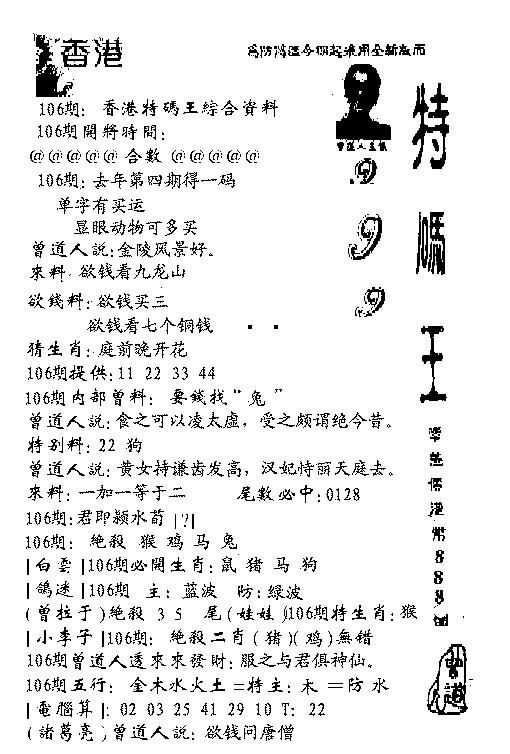 香港
為防搗温今期起采用全新版面
106期: 香港特碼王綜合資料
106期開將時間:
@@@@@ 合數 @@@@@
106期: 去年第四期得一码
单字有买运
显眼动物可多买
曾道人説: 金陵风景好。
來料: 欲钱看九龙山
欲錢料: 欲钱买三
欲钱看七个铜钱
猜生肖: 庭前晚开花
106期提供: 11 22 33 44
106期内部曾料: 要錢找“兔”
曾道人説: 食之可以凌太虚, 受之颇谓绝今昔。
特别料: 22 狗
曾道人説: 黄女持谦齿发高, 汉妃恃丽天庭去。
來料: 一加一等于二 尾數必中: 0128
106期: 君即颍水荀 |?|
106期: 絶殺 猴 鸡 马 兔
|白雲|106期必開生肖: 鼠 猪 马 狗
|鴿迷|106期 主: 蓝波 防: 绿波
(曾拉于)絶殺 3 5 尾(娃娃)106期特生肖: 猴
|小李子|106期: 絶殺二肖(猪)(鸡)無错
106期曾道人透來來發財: 服之与君俱神仙。
106期五行: 金木水火土=特主: 木=防水
|電腦算|: 02 03 25 41 29 10 T: 22
(諸葛亮)曾道人説: 欲钱问唐僧
9
9
9
特
碼
王
港
幣
8
8
8
曾道